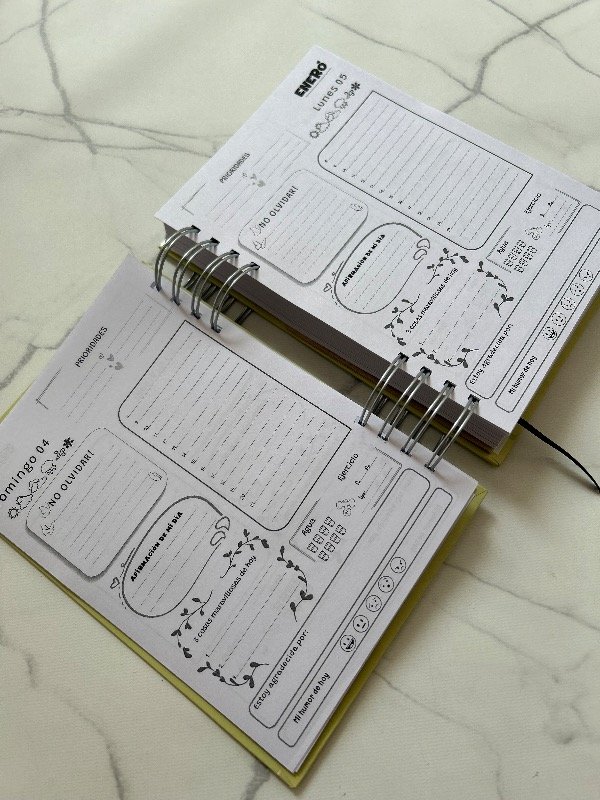 Domingo 04
PRIORIDADES
¡NO OLVIDAR!
AFIRMACIÓN DE MI DÍA
3 cosas maravillosas de hoy
Agua
Ejercicio
Estoy agradecida por:
Mi humor de hoy
ENERO
Lunes 05
PRIORIDADES
¡NO OLVIDAR!
AFIRMACIÓN DE MI DÍA
3 cosas maravillosas de hoy
Agua
Ejercicio
Estoy agradecida por:
Mi humor de hoy